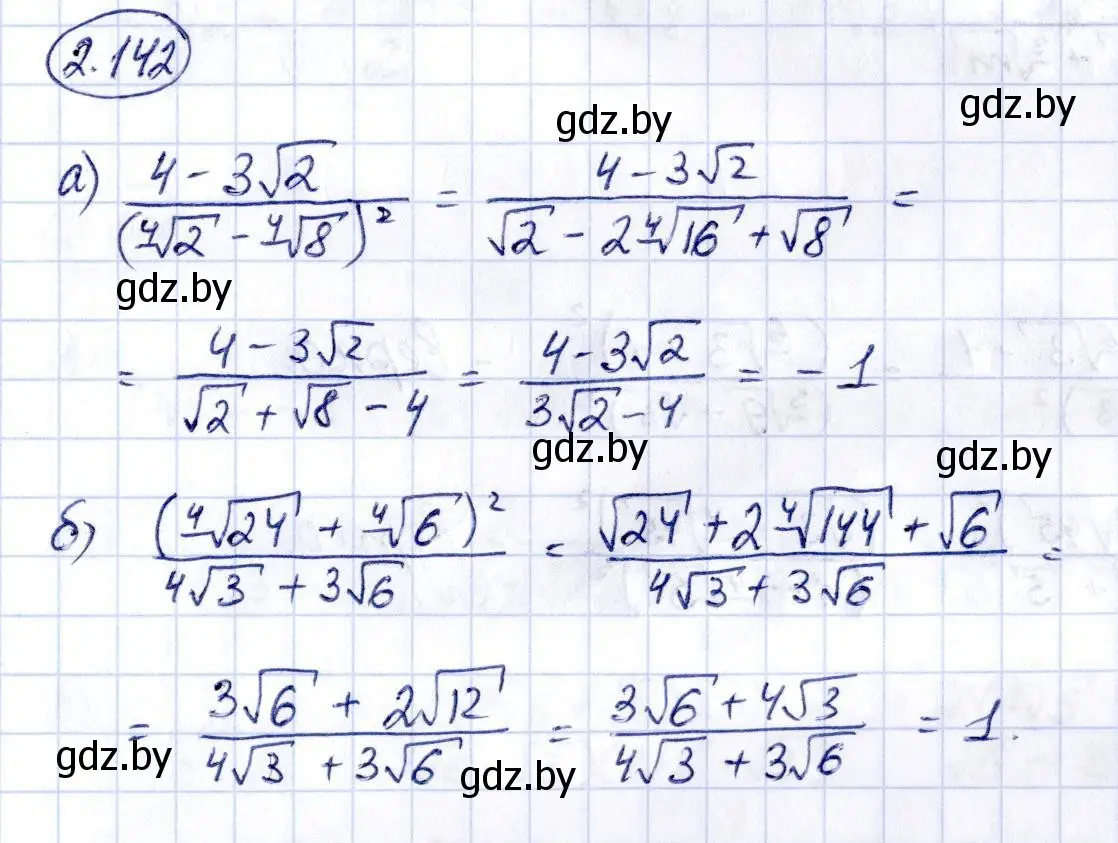 2.142
gdz.by
gdz.by
а) (4 - 3√2)/(∜2 - ∜8)² = (4 - 3√2)/(√2 - 2∜16 + √8) =
gdz.by
= (4 - 3√2)/(√2 + √8 - 4) = (4 - 3√2)/(3√2 - 4) = - 1
gdz.by
gdz.by
б) (∜24 + ∜6)²/(4√3 + 3√6) = (√24 + 2∜144 + √6)/(4√3 + 3√6) =
= (3√6 + 2√12)/(4√3 + 3√6) = (3√6 + 4√3)/(4√3 + 3√6) = 1.
gdz.by
gdz.by